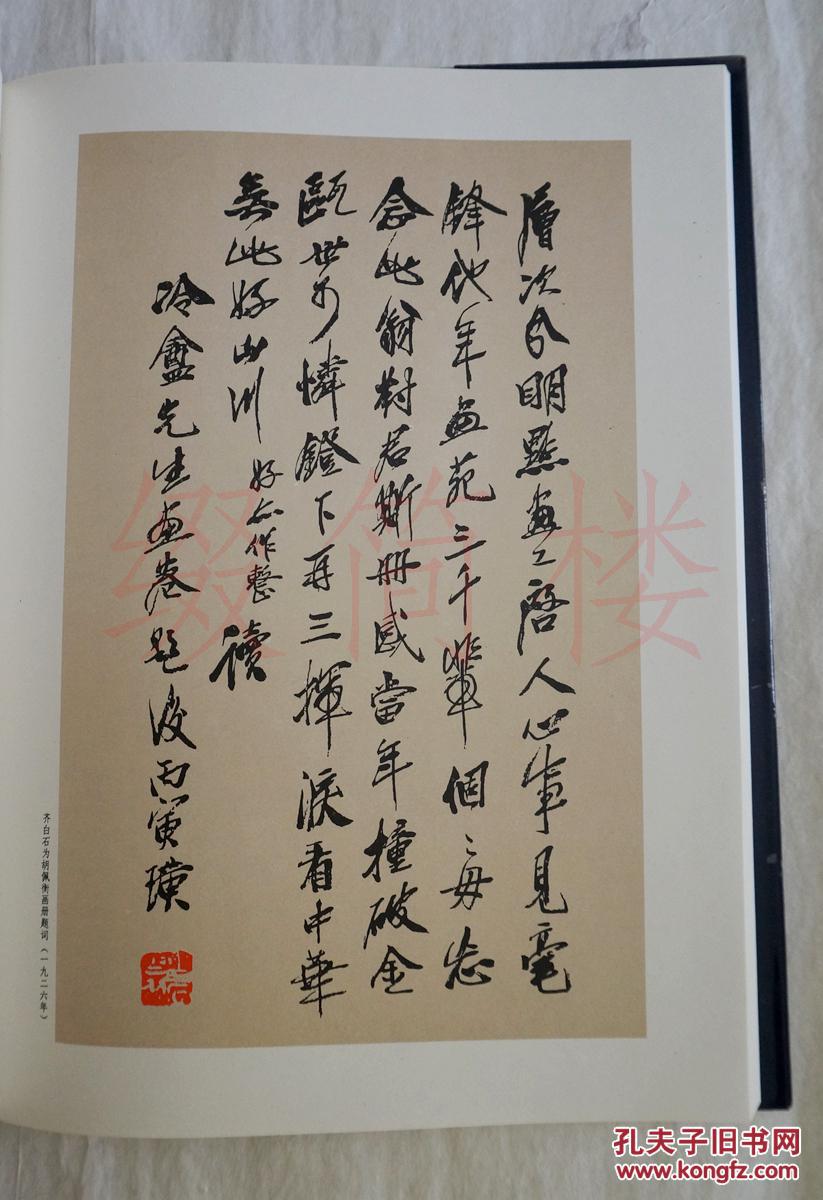 層次分明點畫工啓人心事見毫
鋒他年畫苑三千輩個〻毋忘
念此翁對君斯冊感當年撞破金
甌世可憐鐙下再三揮淚看中華
無此好山川 好亦作整 讀
冷盦先生畫卷題後丙寅璜
齐白石为胡佩衡画册题词（一九二六年）
缀简楼
孔夫子旧书网
www.kongfz.com